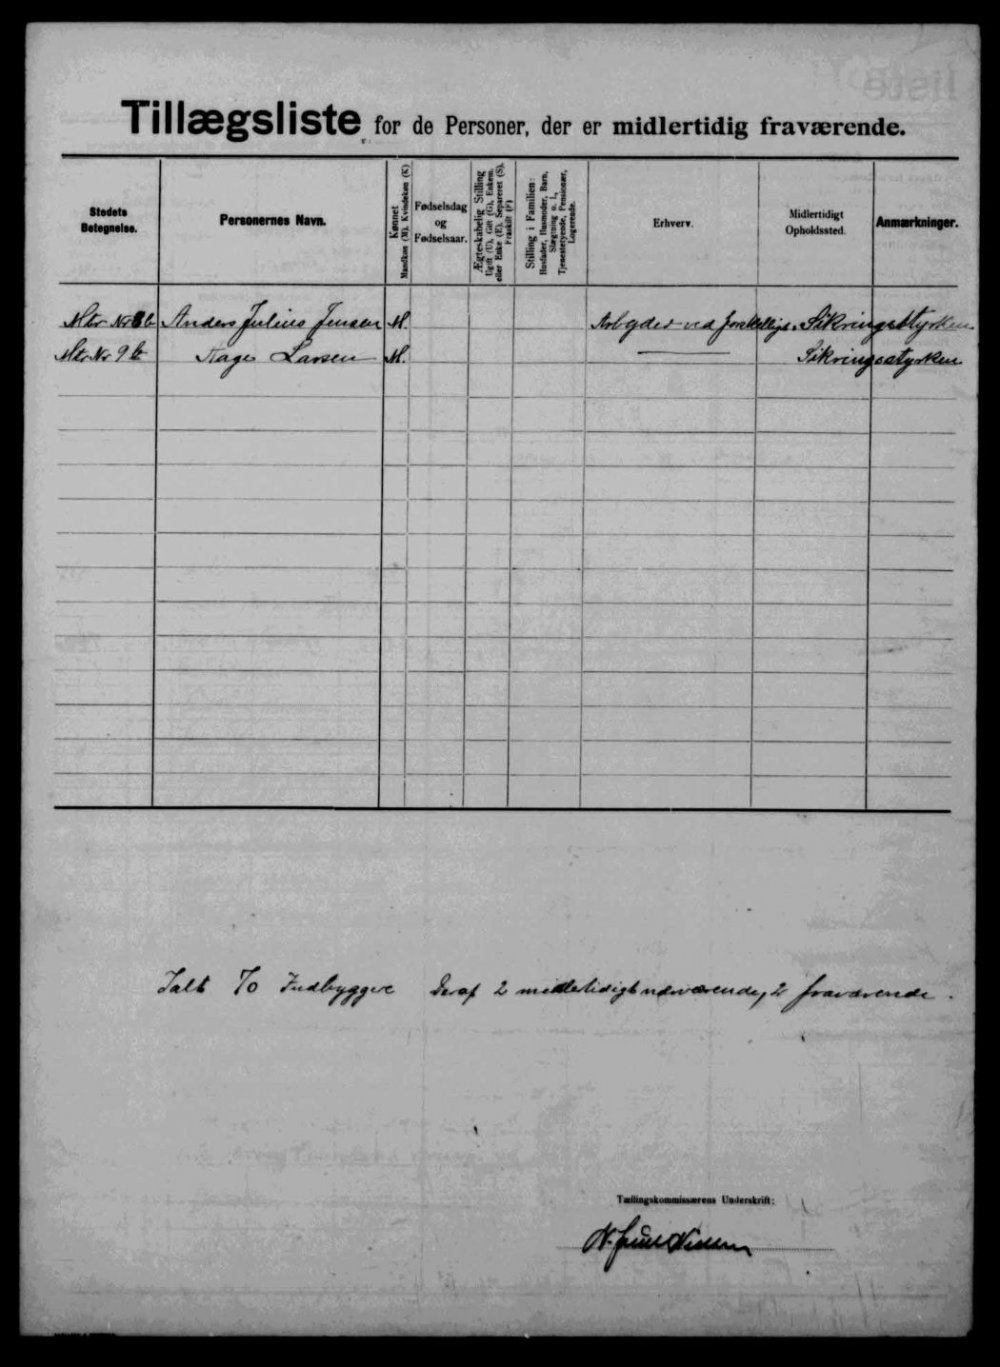 Tillægsliste for de Personer, der er midlertidig fraværende.
Stedets Betegnelse.
Personernes Navn.
Kønnet
Mandkøn (M). Kvindekøn (K)
Fødselsdag og Fødselsaar.
Ægteskabelig Stilling
Ugift (U), Gift (G), Enkem. eller Enke (E), Separeret (S), Fraskilt (F)
Stilling i Familien:
Husfader, Husmoder, Barn, Slægtning o. l., Tjenestetyende, Pensionær, Logerende.
Erhverv.
Midlertidigt Opholdssted.
Anmærkninger.
Mtr Nr 8b Anders Julius Jensen M. Arbejder ved Sikringsstyrken
Mtr Nr 9b Tage Larsen M. Sikringsstyrken
Ialt 70 Indbyggere Deraf 2 midlertidigt nærværende, 2 fraværende.
Tællingskommissærens Underskrift: